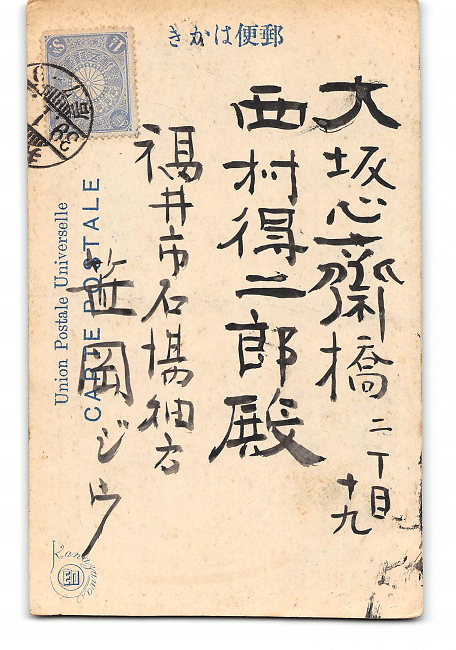 郵便はかき
大坂心斎橋二丁目
十九
西村得二郎殿
福井市石場
岡ジウ
Union Postale Universelle
CARTE POSTALE